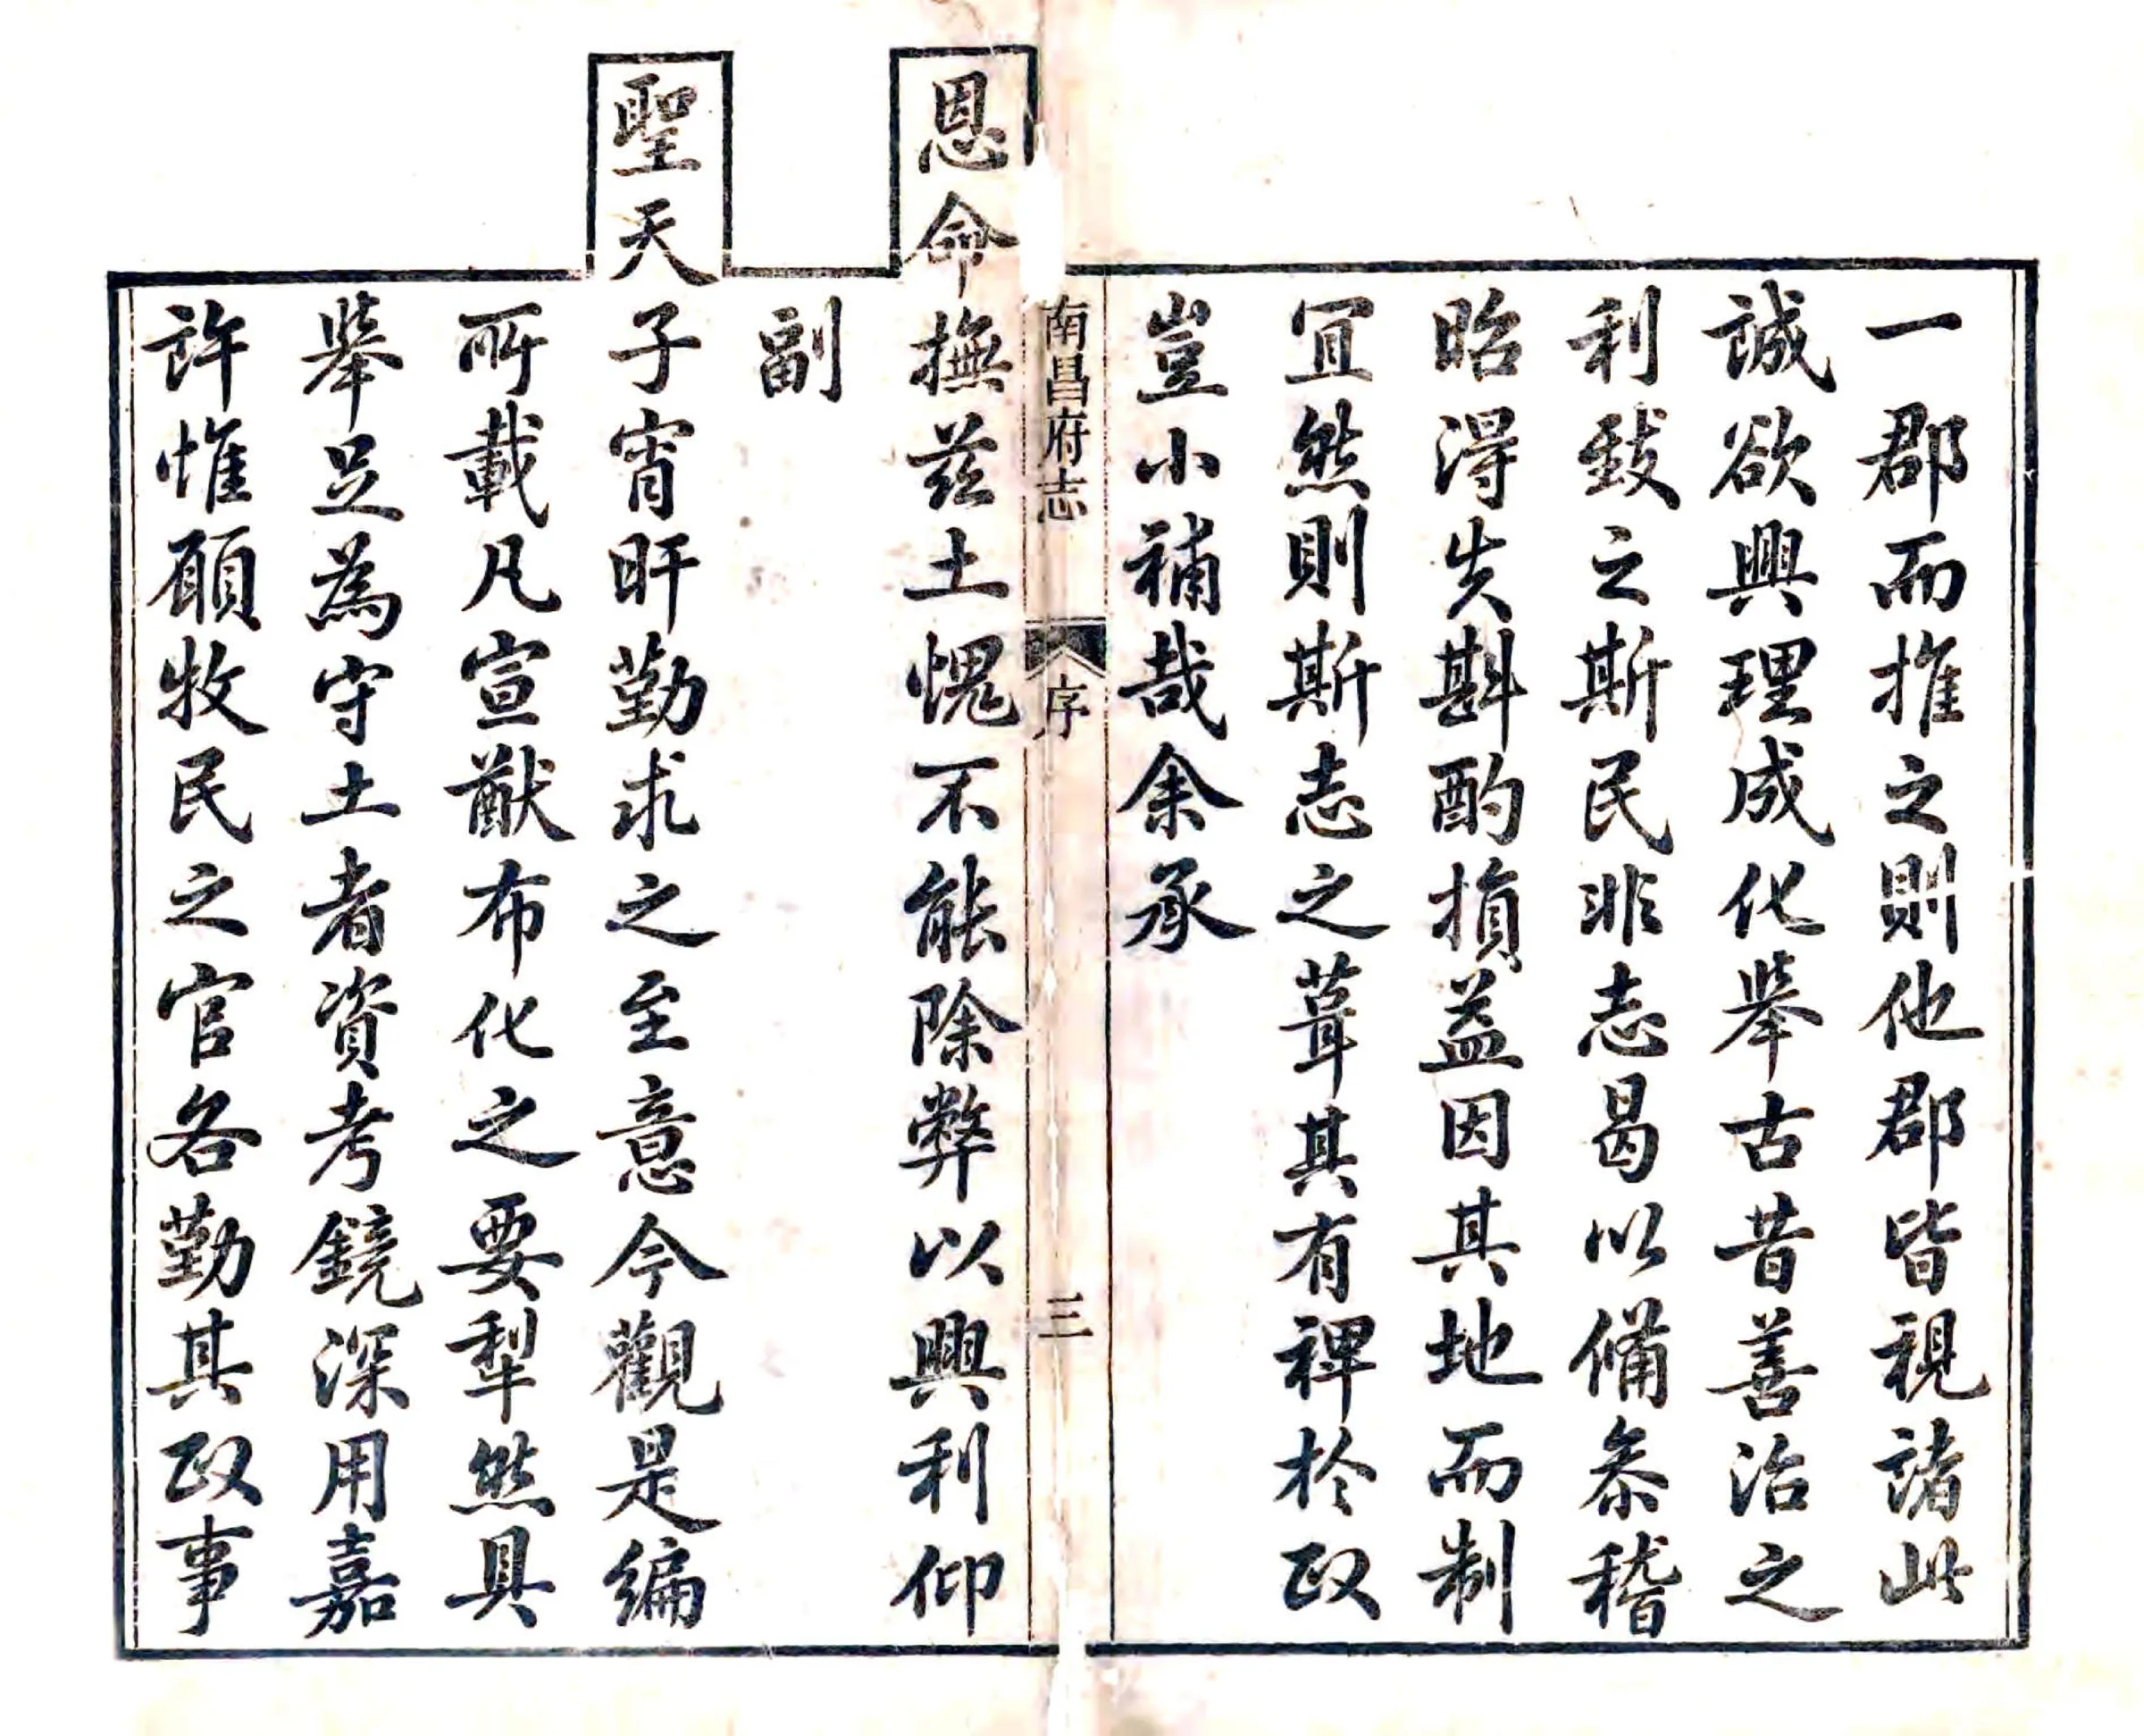 一郡而推之則他郡皆視諸此
誠欲興理成化舉古昔善治之
利致之斯民非志曷以備叅稽
昭得失斟酌損益因其地而制
宜然則斯志之葺其有裨於政
豈小補哉余承
南昌府志 序 三
恩命撫茲土愧不能除弊以興利仰
副
聖天子宵旰勤求之至意今觀是編
所載凡宣猷布化之要犁然具
舉足為守土者資考鏡深用嘉
許惟願牧民之官各勤其政事